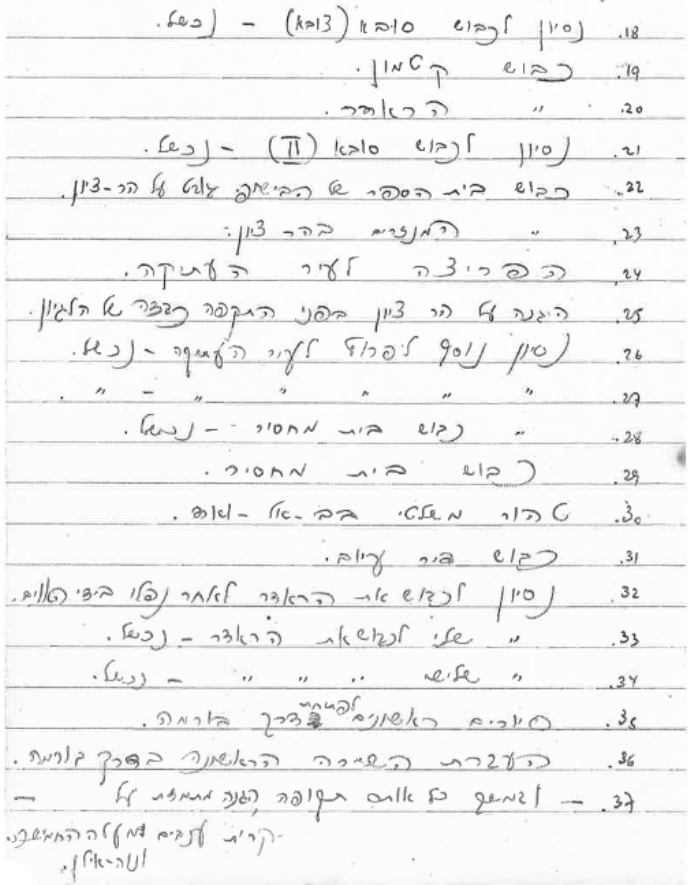 18. נסיון לכבוש סובא (צובא) – נכשל.
19. כבוש קטמון.
20. " הראדר.
21. נסיון לכבוש סובא (II) – נכשל.
22. כבוש בית הספר של הבישוף גובט על הר-ציון.
23. " המנזרים בהר ציון.
24. הפריצה לעיר העתיקה.
25. היגנה על הר ציון בפני התקפה כבדה של הלגיון.
26. נסיון נוסף לפרוץ לעיר העתיקה – נכשל.
27. " " " " – ".
28. " כבוש בית מחסיר – נכשל.
29. כבוש בית מחסיר.
30. טהור משלטי בב-אל-ואד.
31. כבוש ביר עיוב.
32. נסיון לכבוש את הראדר לאחר נפלו בידי הלגיון.
33. " שני לכבוש את הראדר – נכשל.
34. " שלישי " " " – נכשל.
35. סיורים ראשונים לפתיחת דרך בורמה.
36. העברת השיירה הראשונה בדרך בורמה.
37. – ובמשך כל אותה תקופה הגנה מתמדת על –
קרית ענבים מעלה החמישה.
ונוה-אילן.